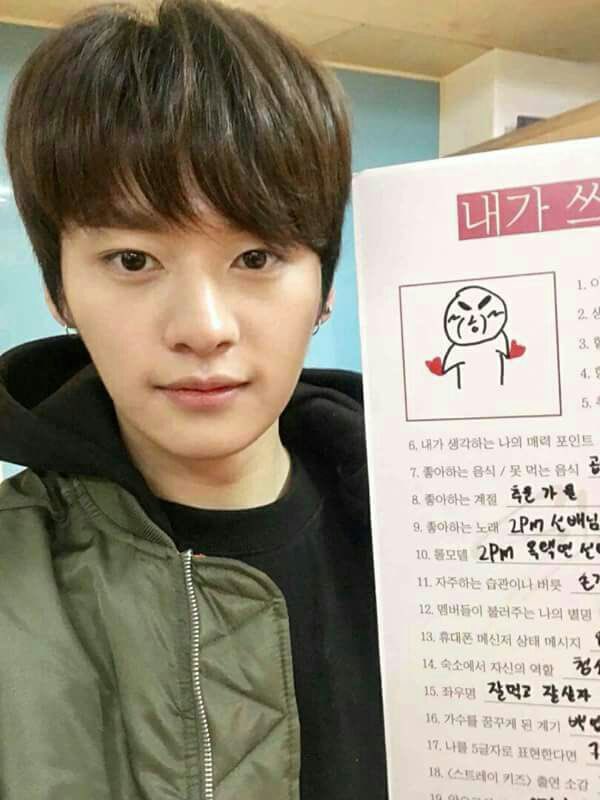 내가
1.
2.
3.
4.
5.
6. 내가 생각하는 나의 매력 포인트
7. 좋아하는 음식 / 못 먹는 음식 곱
8. 좋아하는 계절 추운 가을
9. 좋아하는 노래 2PM 선배님
10. 롤모델 2PM 옥택연 선
11. 자주하는 습관이나 버릇
12. 멤버들이 불러주는 나의 별명
13. 휴대폰 메신저 상태 메시지
14. 숙소에서 자신의 역할 청소
15. 좌우명 잘먹고 잘살자
16. 가수를 꿈꾸게 된 계기
17. 나를 5글자로 표현한다면
18. <스트레이 키즈> 출연 소감
19.